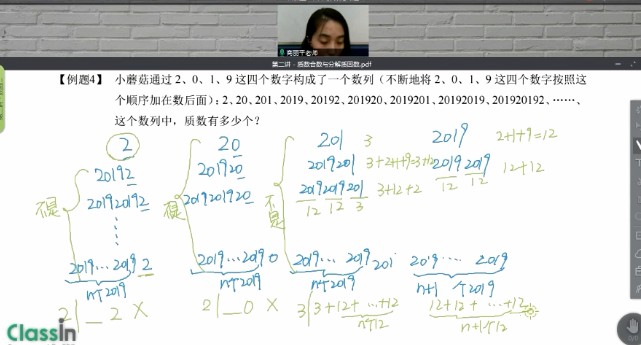 高丽平老师
第二讲·质数合数与分解质因数.pdf
【例题4】 小蘑菇通过 2、0、1、9 这四个数字构成了一个数列（不断地将 2、0、1、9 这四个数字按照这
个顺序加在数后面）：2、20、201、2019、20192、201920、2019201、20192019、201920192、……，
这个数列中，质数有多少个？
2 20 201 3 2019 2+1+9=12
20192 201920 2019201 3+2+1+9=3+12 20192019 12+12
201920192 2019201920 20192019201 3+12+2 12 12
12 12 3
不是 不是 不是
2019…2019 2 2019…2019 0 2019…2019 201 2019…2019
n个2019 n个2019 n个2019 n+1个2019
2|_2 × 2|_0 × 3|3+12+…+12 12+12+…+12
n个12 n+1个12
ClassIn